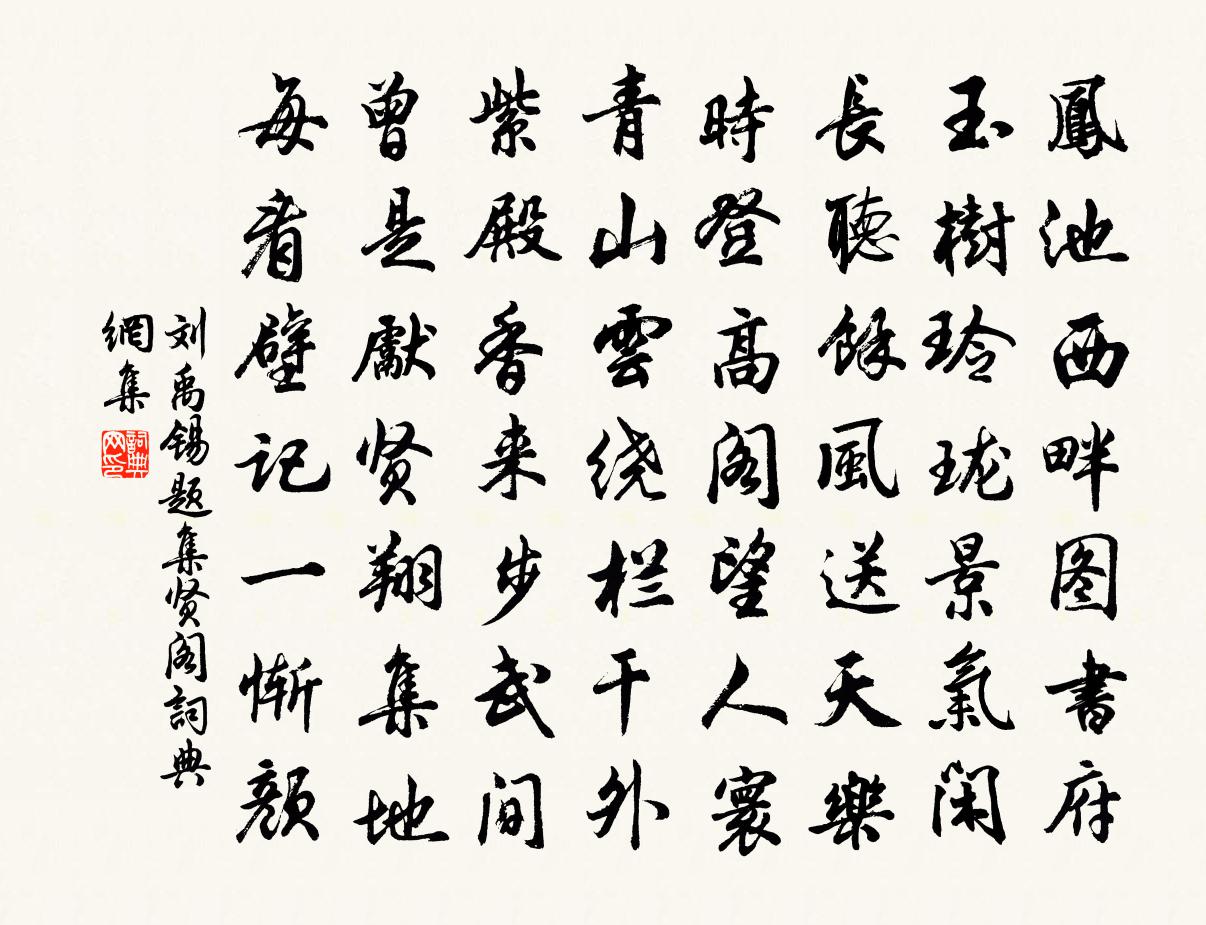 鳳池西畔图書府
玉樹玲珑景氣閑
長聽餘風送天樂
時登高阁望人寰
青山雲绕栏干外
紫殿香来步武间
曾是獻贤翔集地
每看壁记一惭顔
刘禹锡题集贤阁詞典
網集
詞典
网印